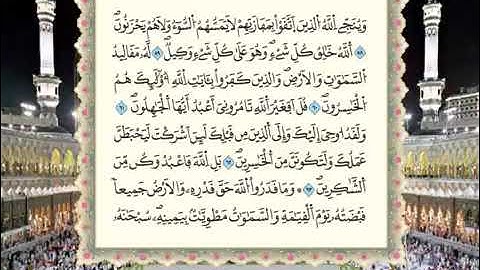 وَيُنَجِّے اِ۬للَّهُ اُ۬لذِينَ اَ۪تَّقَوْاْ بِمَفَازَتِهِمْ لَا يَمَسُّهُمُ اُ۬لسُّوٓءُ وَلَا هُمْ يَحْزَنُونَ
اَ۬للَّهُ خَٰلِقُ كُلِّ شَےْءٖ وَهُوَ عَلَىٰ كُلِّ شَےْءٖ وَكِيلٞ لَّهُۥ مَقَالِيدُ
اُ۬لسَّمَٰوَٰتِ وَالَارْضِ وَالذِينَ كَفَرُواْ بِـَٔايَٰتِ اِ۬للَّهِ أُوْلَٰٓئِكَ هُمُ
اُ۬لْخَٰسِرُونَ قُلَ اَفَغَيْرَ اَ۬للَّهِ تَامُرُونِيَ أَعْبُدُ أَيُّهَا اَ۬لْجَٰهِلُونَ
وَلَقَدُ ا۟وحِيَ إِلَيْكَ وَإِلَى اَ۬لذِينَ مِن قَبْلِكَ لَئِنَ اَشْرَكْتَ لَيَحْبَطَنَّ
عَمَلُكَ وَلَتَكُونَنَّ مِنَ اَ۬لْخَٰسِرِينَ بَلِ اِ۬للَّهَ فَاعْبُدْ وَكُن مِّنَ
اَ۬لشَّٰكِرِينَ وَمَا قَدَرُواْ اُ۬للَّهَ حَقَّ قَدْرِهِۦ وَالَارْضُ جَمِيعاٗ
قَبْضَتُهُۥ يَوْمَ اَ۬لْقِيَٰمَةِ وَالسَّمَٰوَٰتُ مَطْوِيَّٰتُۢ بِيَمِينِهِۦ سُبْحَٰنَهُۥ